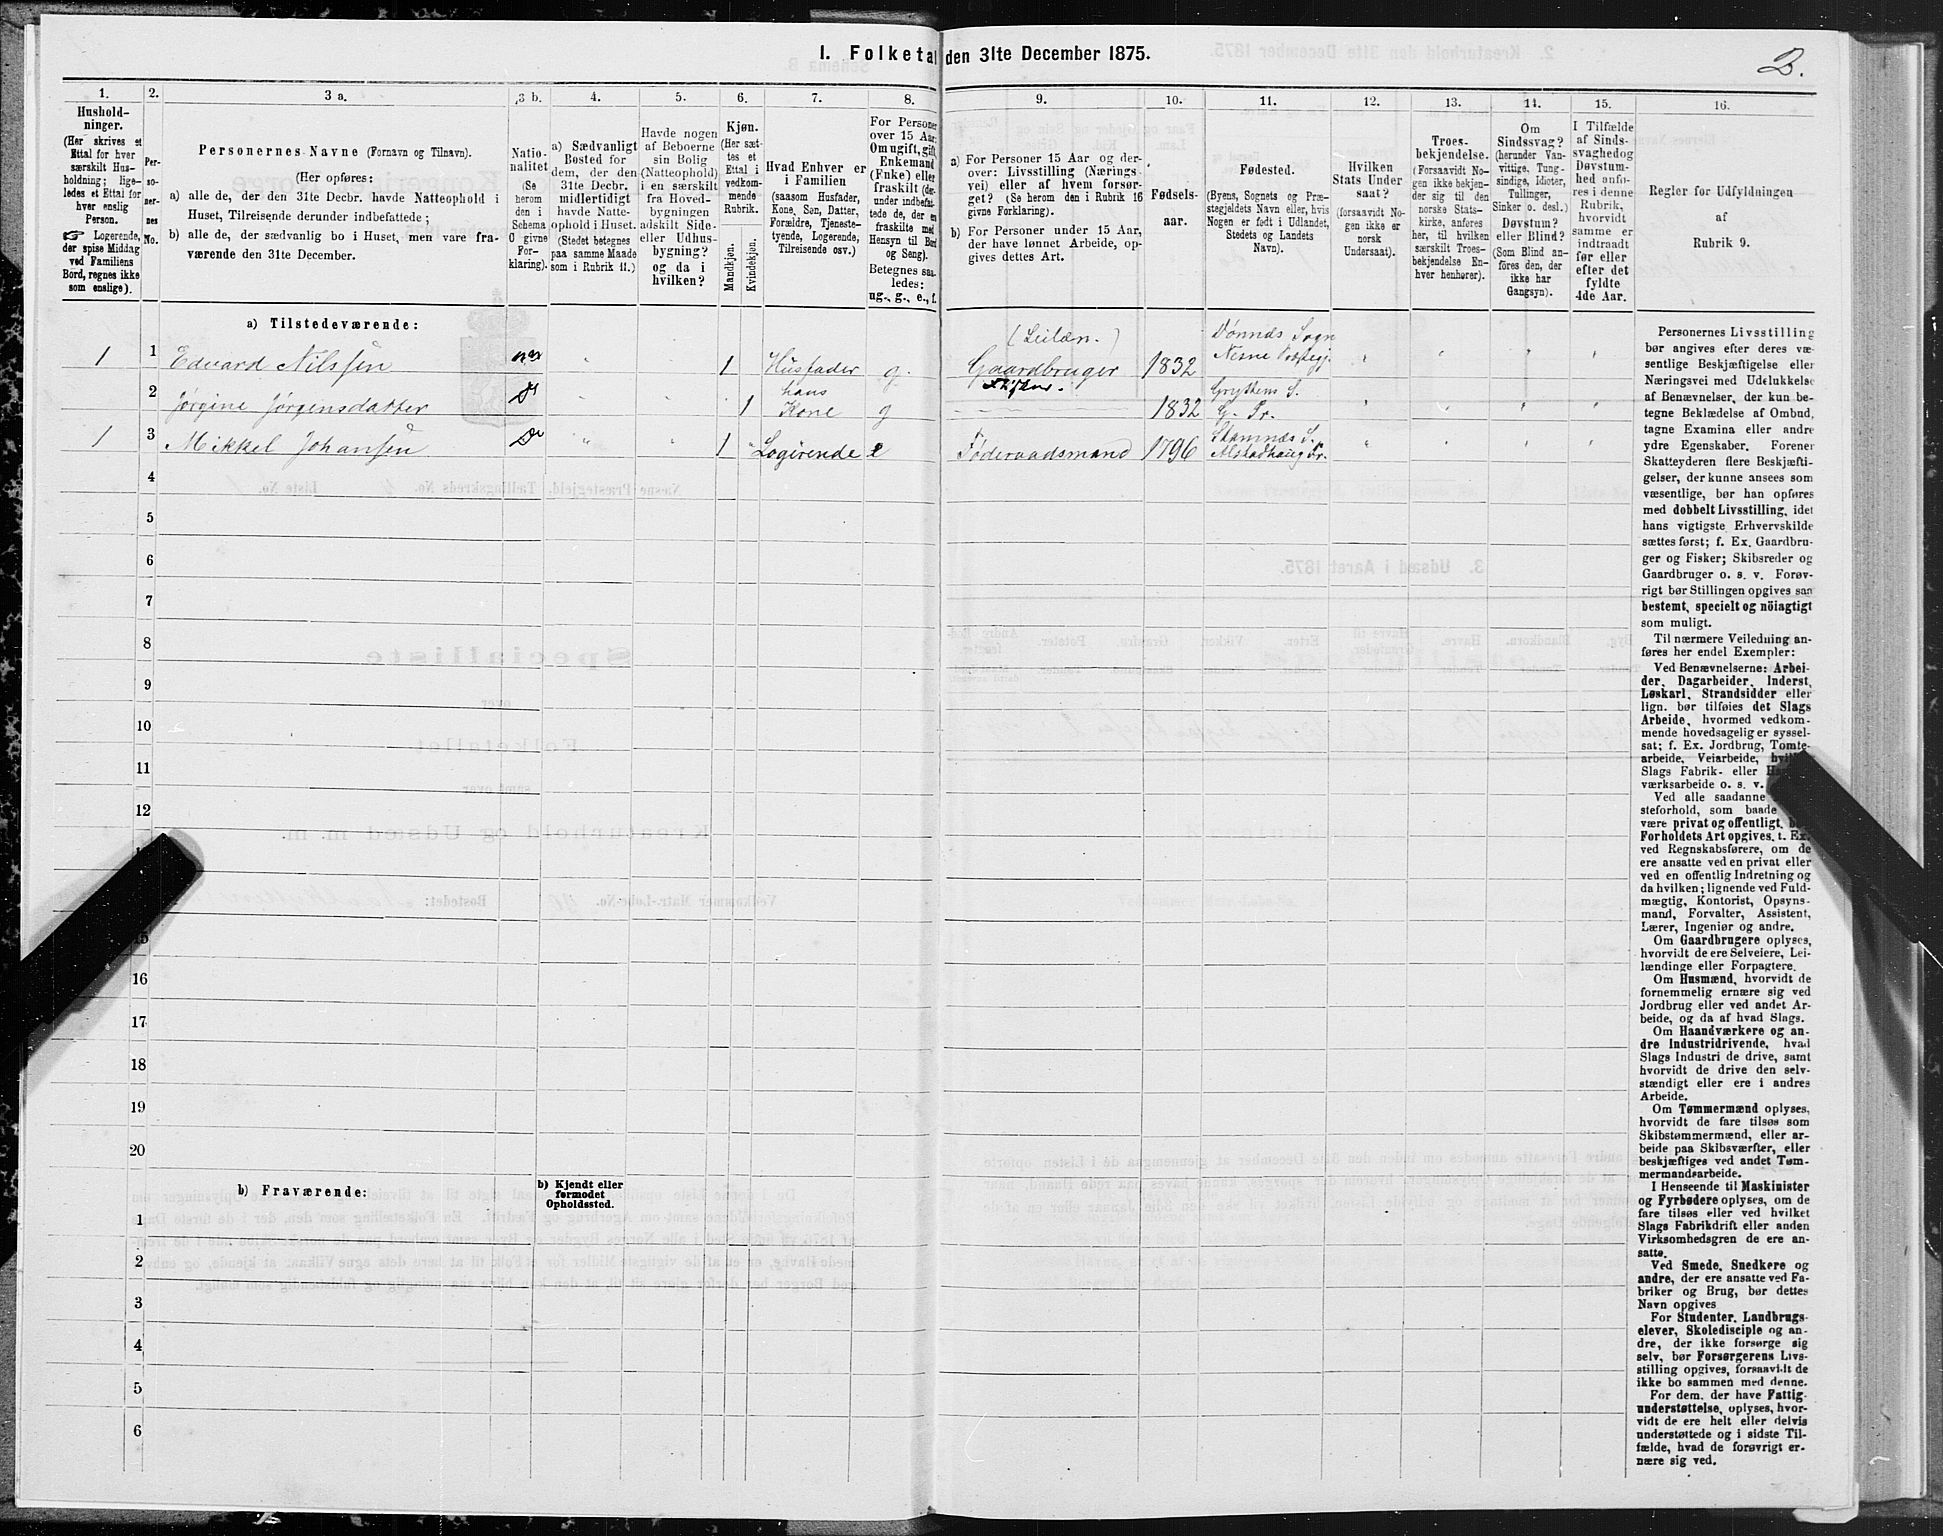 I. Folketal den 31te December 1875.
2.
1.
Hushold-
ninger.
(Her skrives et
Ettal for hver
særskilt Hus-
holdning; lige-
ledes et Ettal for
hver enslig
Person.
☞ Logerende,
der spise Middag
ved Familiens
Bord, regnes ikke
som enslige).
2.
Per-
so-
ner-
nes
No.
3 a.
Personernes Navne (Fornavn og Tilnavn).
(Her opføres:
a) alle de, der den 31te Decbr. havde Natteophold i
Huset, Tilreisende derunder indbefattede;
b) alle de, der sædvanlig bo i Huset, men vare fra-
værende den 31te December.
3 b.
Natio-
nalitet
(Se
herom
den i
Schema
O givne
For-
klaring).
4.
a) Sædvanligt
Bosted for
dem, der den
31te Decbr.
midlertidigt
havde Natte-
ophold i Huset.
(Stedet betegnes
paa samme Maade
som i Rubrik 11.)
5.
Havde nogen
af Beboerne
sin Bolig
(Natteophold)
i en særskilt
fra Hoved-
bygningen
adskilt Side-
eller Udhus-
bygning?
og da i
hvilken?
6.
Kjøn.
(Her sæt-
tes et
Ettal i
vedkom-
mende
Rubrik.
Mandkjøn.
Kvindekjøn.
7.
Hvad Enhver er
i Familien
(saasom Husfader,
Kone, Søn, Datter,
Forældre, Tjeneste-
tyende, Logerende,
Tilreisende osv.)
8.
For Personer
over 15 Aar:
Om ugift, gift,
Enkemand
(Enke) eller
fraskilt (der-
under indbefat-
tede de, der ere
fraskilte med
Hensyn til Bord
og Seng).
Betegnes saa-
ledes:
ug., g., e., f.
9.
a) For Personer 15 Aar og der-
over: Livsstilling (Nærings-
vei) eller af hvem forsør-
get? (Se herom den i Rubrik 16
givne Forklaring).
b) For Personer under 15 Aar,
der have lønnet Arbeide, op-
gives dettes Art.
10.
Fødsels-
aar.
11.
Fødested.
(Byens, Sognets og Præ-
stegjeldets Navn eller, hvis
Nogen er født i Udlandet,
Stedets og Landets
Navn).
12.
Hvilken
Stats Under
saat?
(forsaavidt No-
gen ikke er
norsk
Undersaat).
13.
Troes-
bekjendelse.
(Forsaavidt No-
gen ikke bekjen-
der sig til den
norske Stats-
kirke, anføres
her, til hvilken
særskilt Troes-
bekjendelse En-
hver henhører).
14.
Om
Sindssvag?
(herunder Van-
vittige, Tung-
sindige, Idioter,
Tullinger,
Sinker o. desl.)
Døvstum?
eller Blind?
(Som Blind an-
føres den, der
ikke har
Gangsyn).
15.
I Tilfælde
af Sinds-
svaghed og
Døvstum-
hed anfø-
res i denne
Rubrik,
hvorvidt
samme er
indtraadt
før eller
efter det
fyldte
4de Aar.
16.
Regler for Udfyldningen
af
Rubrik 9.
a) Tilstedeværende:
1 1 Edvard Nilssen nor " 1 Husfader g. (Leilæn.) Gaardbruger Fisker. 1832 Dønnæs Sogn Nesne Præstegj. " " " "
2 Jørgine Jørgensdatter Do " " 1 hans Kone g 1832 Gryttens S. G. Pr. " " " "
1 3 Mikkel Johansen Do " " 1 " Logerende e Føderaadsmand 1796 Stamnæs S. Alstadhaug Pr. " " " "
4
5
6
7
8
9
10
11
12
15
16
17
18
19
20
b) Fraværende:
b) Kjendt eller
formodet
Opholdssted.
1
2
3
4
5
6
Personernes Livsstilling
bør angives efter deres væ-
sentlige Beskjæftigelse eller
Næringsvei med Udelukkelse
af Benævnelser, der kun be-
tegne Beklædelse af Ombud,
tagne Examina eller andre
ydre Egenskaber. Forener
Skatteyderen flere Beskjæfti-
gelser, der kunne ansees som
væsentlige, bør han opføres
med dobbelt Livsstilling, idet
hans vigtigste Erhvervskilde
sættes først; f. Ex. Gaardbru-
ger og Fisker; Skibsreder og
Gaardbruger o. s. v. Forøv-
rigt bør Stillingen opgives saa
bestemt, specielt og nöiagtigt
som muligt.
Til nærmere Veiledning an-
føres her endel Exempler:
Ved Benævnelserne: Arbei-
der, Dagarbeider, Inderst,
Løskarl, Strandsidder eller
lign. bør tilføies det Slags
Arbeide, hvormed vedkom-
mende hovedsagelig er syssel-
sat; f. Ex. Jordbrug, Tomte-
arbeide, Veiarbeide,
Slags Fabrik- eller
værksarbeide o. s. v.
Ved alle saadanne
steforhold, som baade
være privat og offentligt,
Forholdets Art opgives, t. Ex.
ved Regnskabsførere, om de
ere ansatte ved en privat eller
ved en offentlig Indretning og
da hvilken; lignende ved Fuld-
mægtig, Kontorist, Opsyns-
mand, Forvalter, Assistent,
Lærer, Ingeniør og andre.
Om Gaardbrugere oplyses,
hvorvidt de ere Selveiere, Lei-
lændinge eller Forpagtere.
Om Husmænd, hvorvidt de
fornemmelig ernære sig ved
Jordbrug eller ved andet Ar-
beide, og da af hvad Slags.
Om Haandværkere og an-
dre Industridrivende, hvad
Slags Industri de drive, samt
hvorvidt de drive den selv-
stændigt eller ere i andres
Arbeide.
Om Tømmermænd oplyses,
hvorvidt de fare tilsøs som
Skibstømmermænd, eller ar-
beide paa Skibsværfter, eller
beskjæftiges ved andet Tøm-
mermandsarbeide.
I Henseende til Maskinister
og Fyrbødere oplyses, om de
fare tilsøs eller ved hvilket
Slags Fabrikdrift eller anden
Virksomhedsgren de ere an-
satte.
Ved Smede, Snedkere og
andre, der ere ansatte ved Fa-
briker og Brug, bør dettes
Navn opgives
For Studenter, Landbrugs-
elever, Skoledisciple og an-
dre, der ikke forsørge sig
selv, bør Forsørgerens Livs-
stilling opgives, forsaavidt de
ikke bo sammen med denne.
For dem, der have Fattig-
understøttelse, oplyses, hvor-
vidt de ere helt eller delvis
understøttede og i sidste Til-
fælde, hvad de forøvrigt er-
nære sig ved.